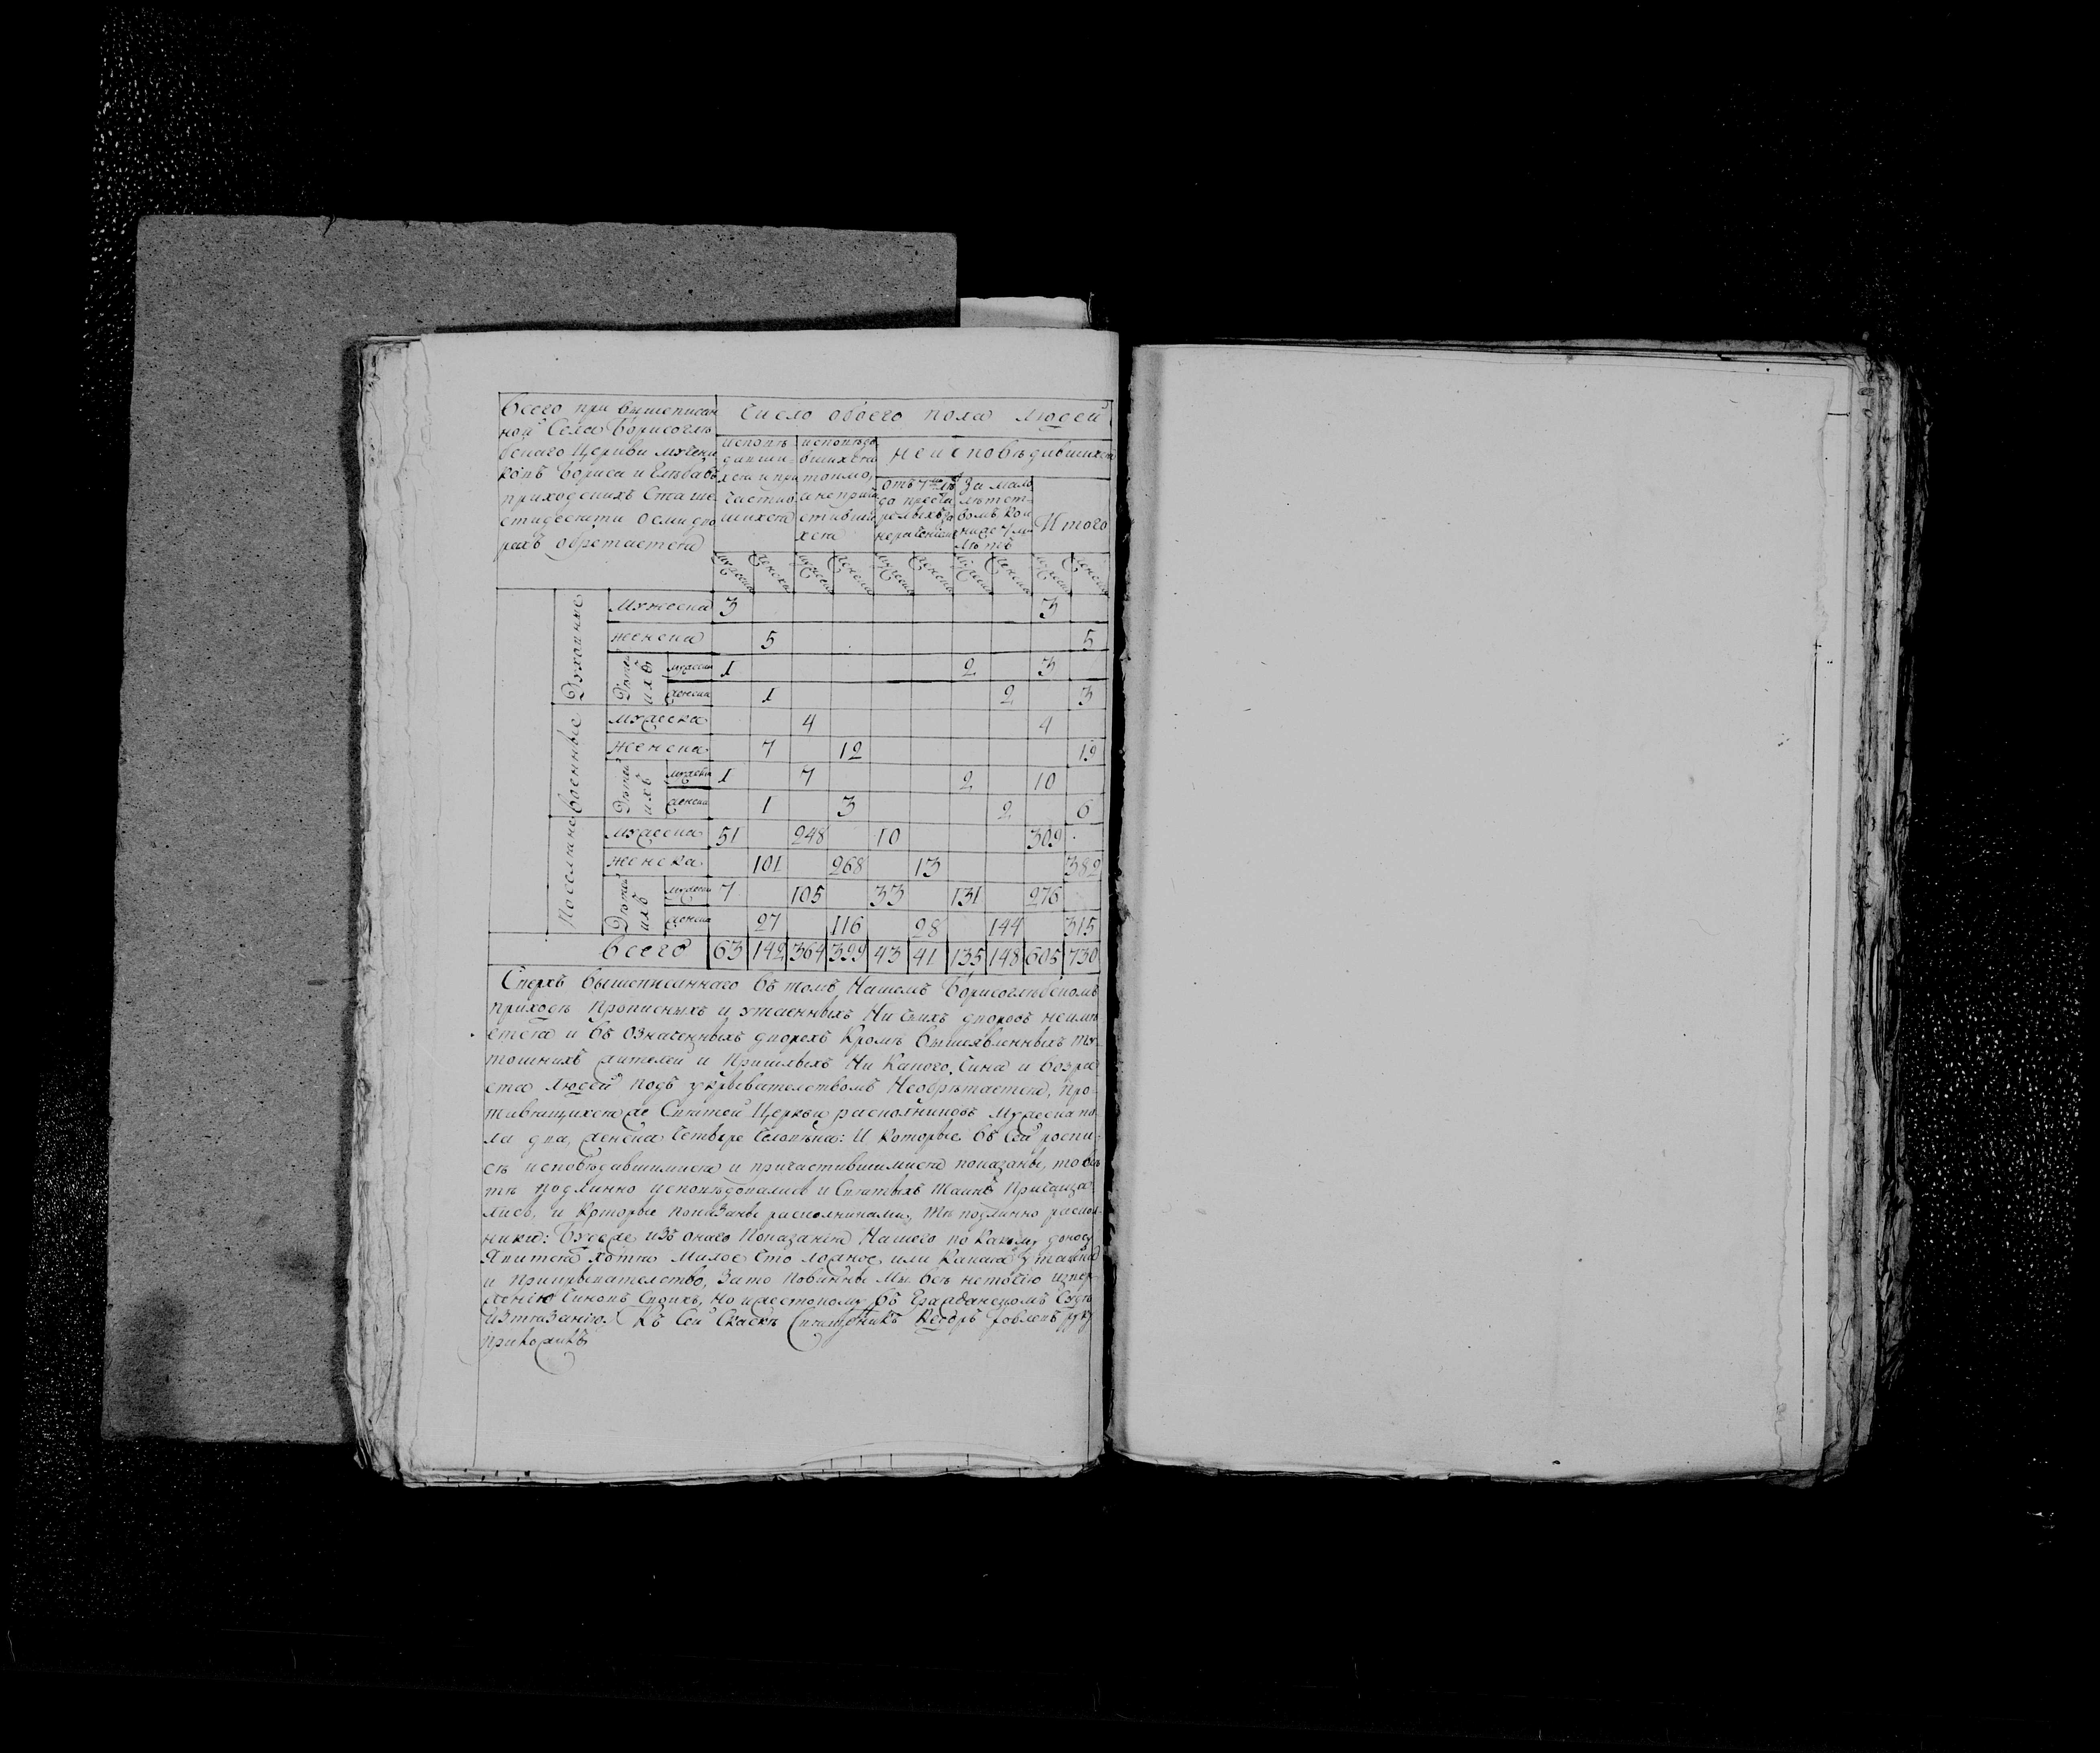 Всего при вышеписан
ной Села Борисоглѣ
бскаго Церкви мучени
ковъ Бориса и Глѣба въ
приходскихъ Сташе
стидесяти осми дво
рахъ обретается
Число обоего пола людей
исповѣ
давши-
хся и при
частив
шихся
исповѣдо
вшихся
токмо,
а не прича
стивши
хся
не исповѣдавшихся
отъ 7ми лѣ
до преста
релыхъ за
нерачениемъ
За мало
лѣтст-
вомъ кои
ниже 7ми
лѣтъ
Итого
мужеска женска мужеска женска мужеска женска мужеска женска мужеска женска
Духовные
мужеска 3 3
женска 5 5
Дѣтей
ихъ
мужеска 1 2 3
женска 1 2 3
Военные
мужеска 4 4
женска 7 12 19
Дѣтей
ихъ
мужеска 1 7 2 10
женска 1 3 2 6
Поселяне
мужеска 51 248 10 309
женска 101 268 13 382
Дѣтей
ихъ
мужеска 7 105 33 131 276
женска 27 116 28 144 315
Всего 63 142 364 399 43 41 135 148 605 730
Сверхъ вышеписаннаго въ томъ Нашемъ Борисоглѣбскомъ
приходѣ прописныхъ и утаенныхъ Ни чьихъ дворовъ неимѣ
ется и въ означенныхъ дворехъ кромѣ вышеявленныхъ ту
тошнихъ жителей и Пришлыхъ Ни какого Чина и возра
ста людей подъ укрывателствомъ Необрѣтается, про
тивящихся же Святей Церкви расколниковъ Мужеска по
ла два, женска четыре человѣка: И которые въ сей роспи
сѣ исповѣдавшимися и причастившимися показаны, то всѣ
тѣ подлинно исповѣдовались и Святыхъ Таинъ Причаща
лись, и которые показаны расколниками, тѣ подлинно раскол
ники: Буде же изъ онаго Показания Нашего по какому доносу
Явится хотя малое что ложное, или какая утайка
и прикрывателство, за то повинны мы всѣ неточию извер
жению чиновъ Своихъ, но и жестокому въ Гражданскомъ Судѣ
изтязанию. Къ сей Скаскѣ Священникъ руку
приложилъ